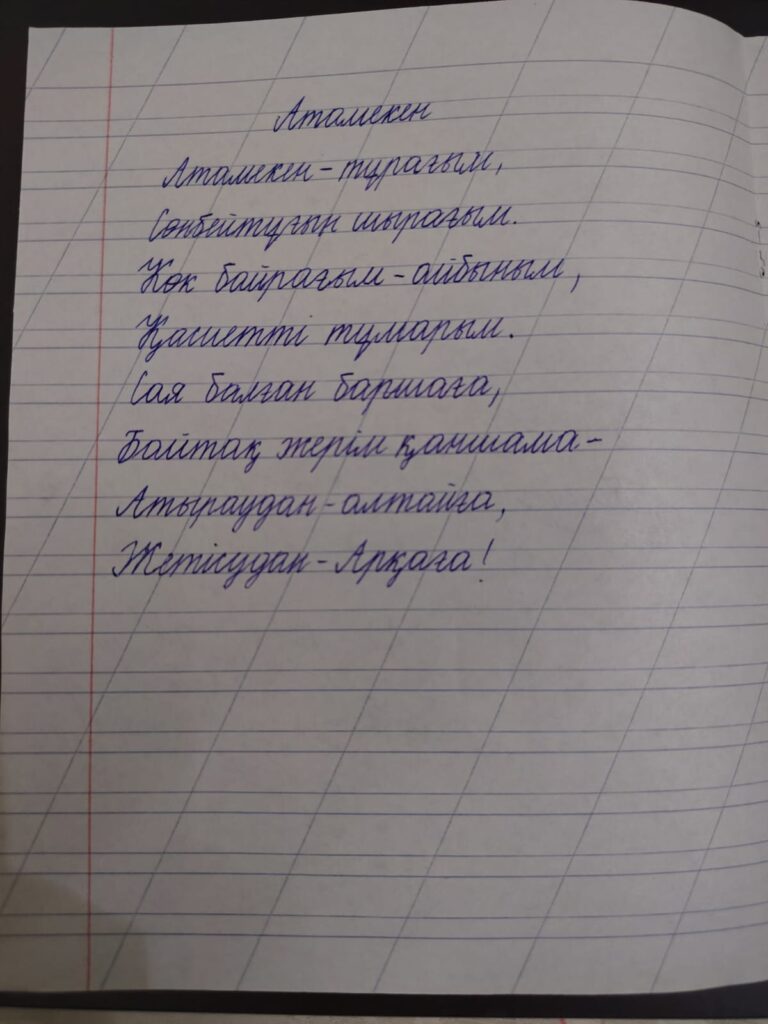 Атамекен
Атамекен - тұрағым,
Сөнбейтұғын шырағым.
Көк байрағым - айбыным,
Қасиетті тұмарым.
Сая балған баршаға,
Байтақ жерім қаншама -
Атыраудан - алтайға,
Жетісудан - Арқаға!